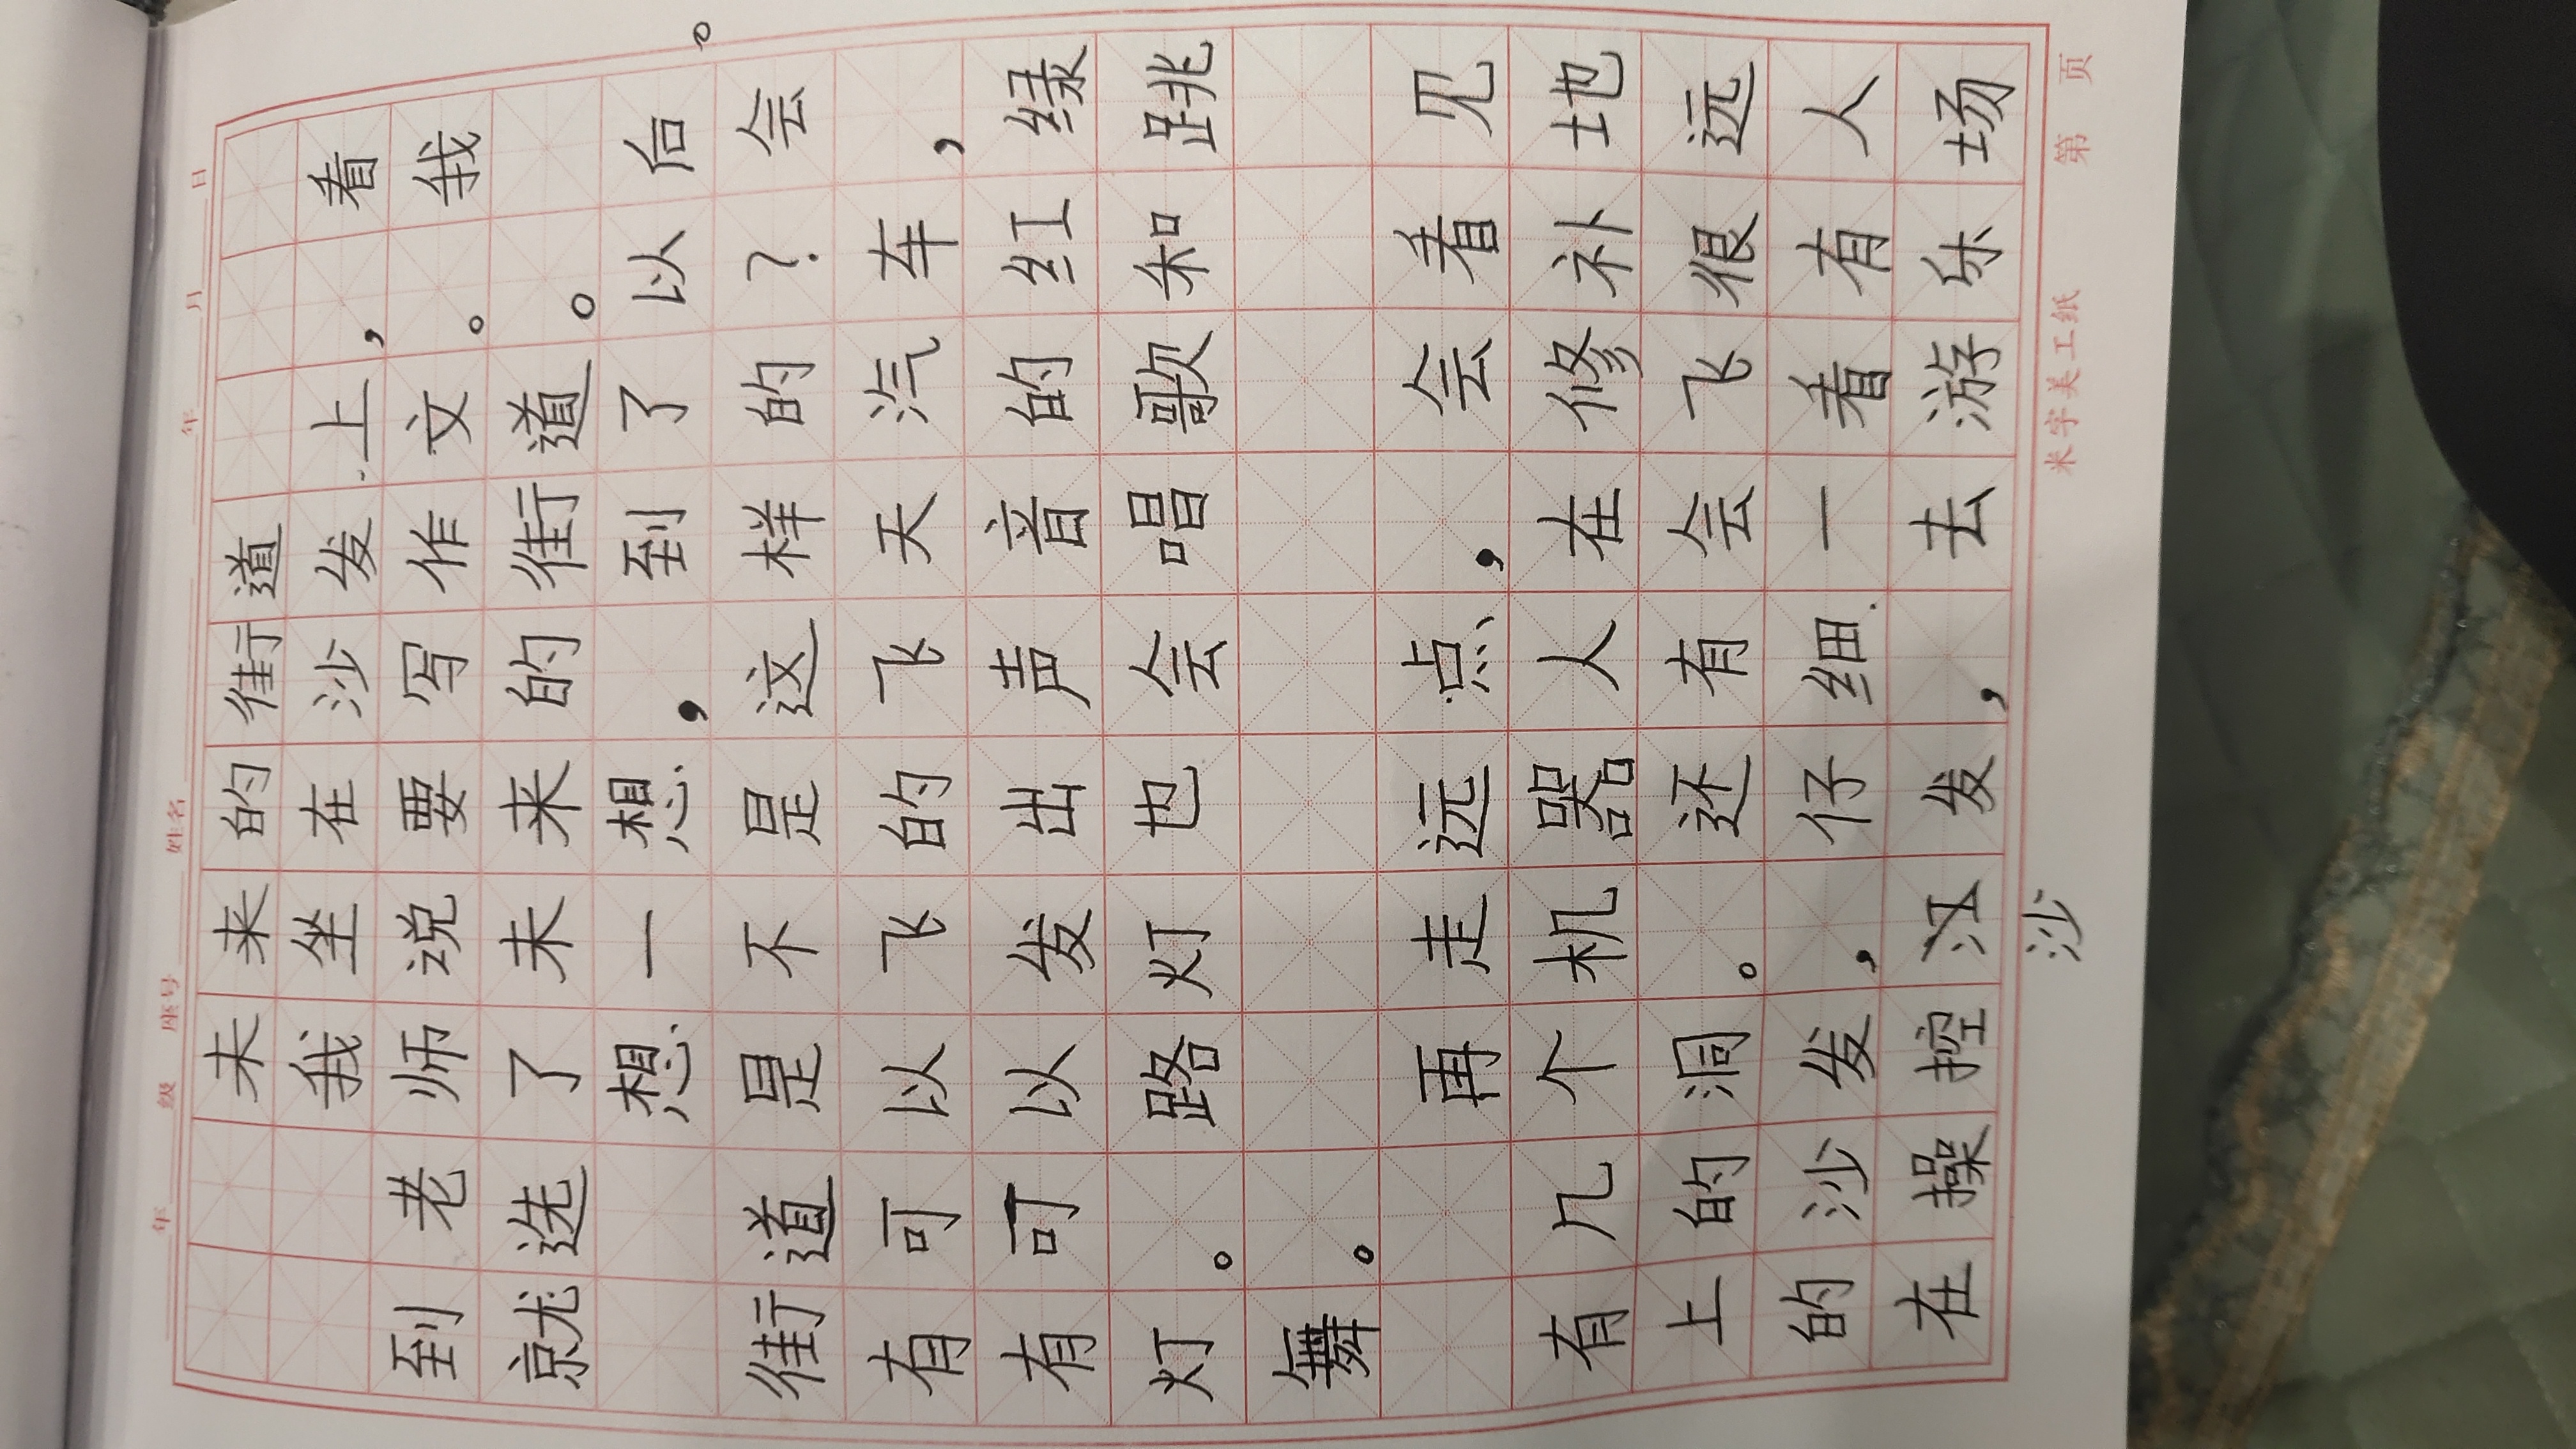 年 级 座号 姓名 年 月 日
未来的街道
我坐在沙发上，看
到老师说要写作文。我
就选了未来的街道。
想一想，到了以后。
街道是不是这样的？会
有可以飞的飞天汽车，
有可以发出声音的红绿
灯。路灯也会唱歌和跳
舞。
再走远点，会看见
有几个机器人在修补地
上的洞。还有会飞很远
的沙发，仔细一看有人
在操控沙发，去游乐场
米字美工纸 第 页